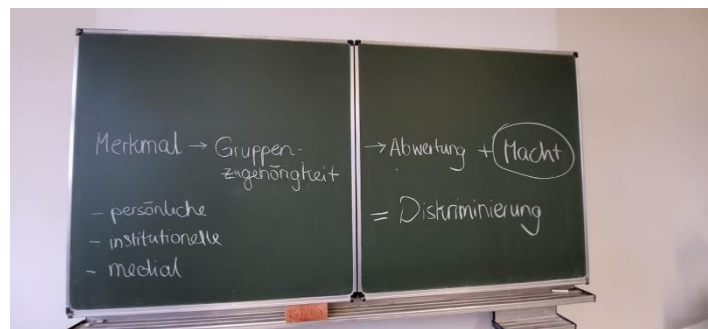 Merkmal → Gruppen-
zugehörigkeit
- persönliche
- institutionelle
- medial
→ Abwertung + Macht
= Diskriminierung